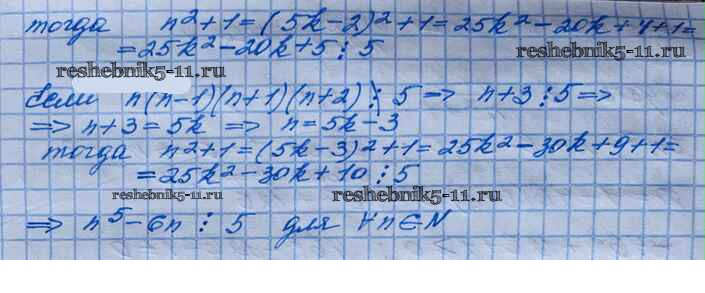 тогда n²+1=(5k-2)²+1=25k²-20k+4+1=
=25k²-20k+5⋮5
reshebnik5-11.ru reshebnik5-11.ru
Если n(n-1)(n+1)(n+2) ⋮̸ 5 ⇒ n+3⋮5 ⇒
⇒ n+3=5k ⇒ n=5k-3
тогда n²+1=(5k-3)²+1=25k²-30k+9+1=
=25k²-30k+10⋮5
reshebnik5-11.ru reshebnik5-11.ru
⇒ n⁵-6n⋮5 для ∀n∈N